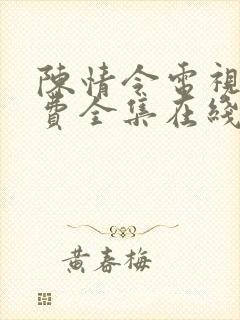 陳情令電視
費全集在綫
黃春梅